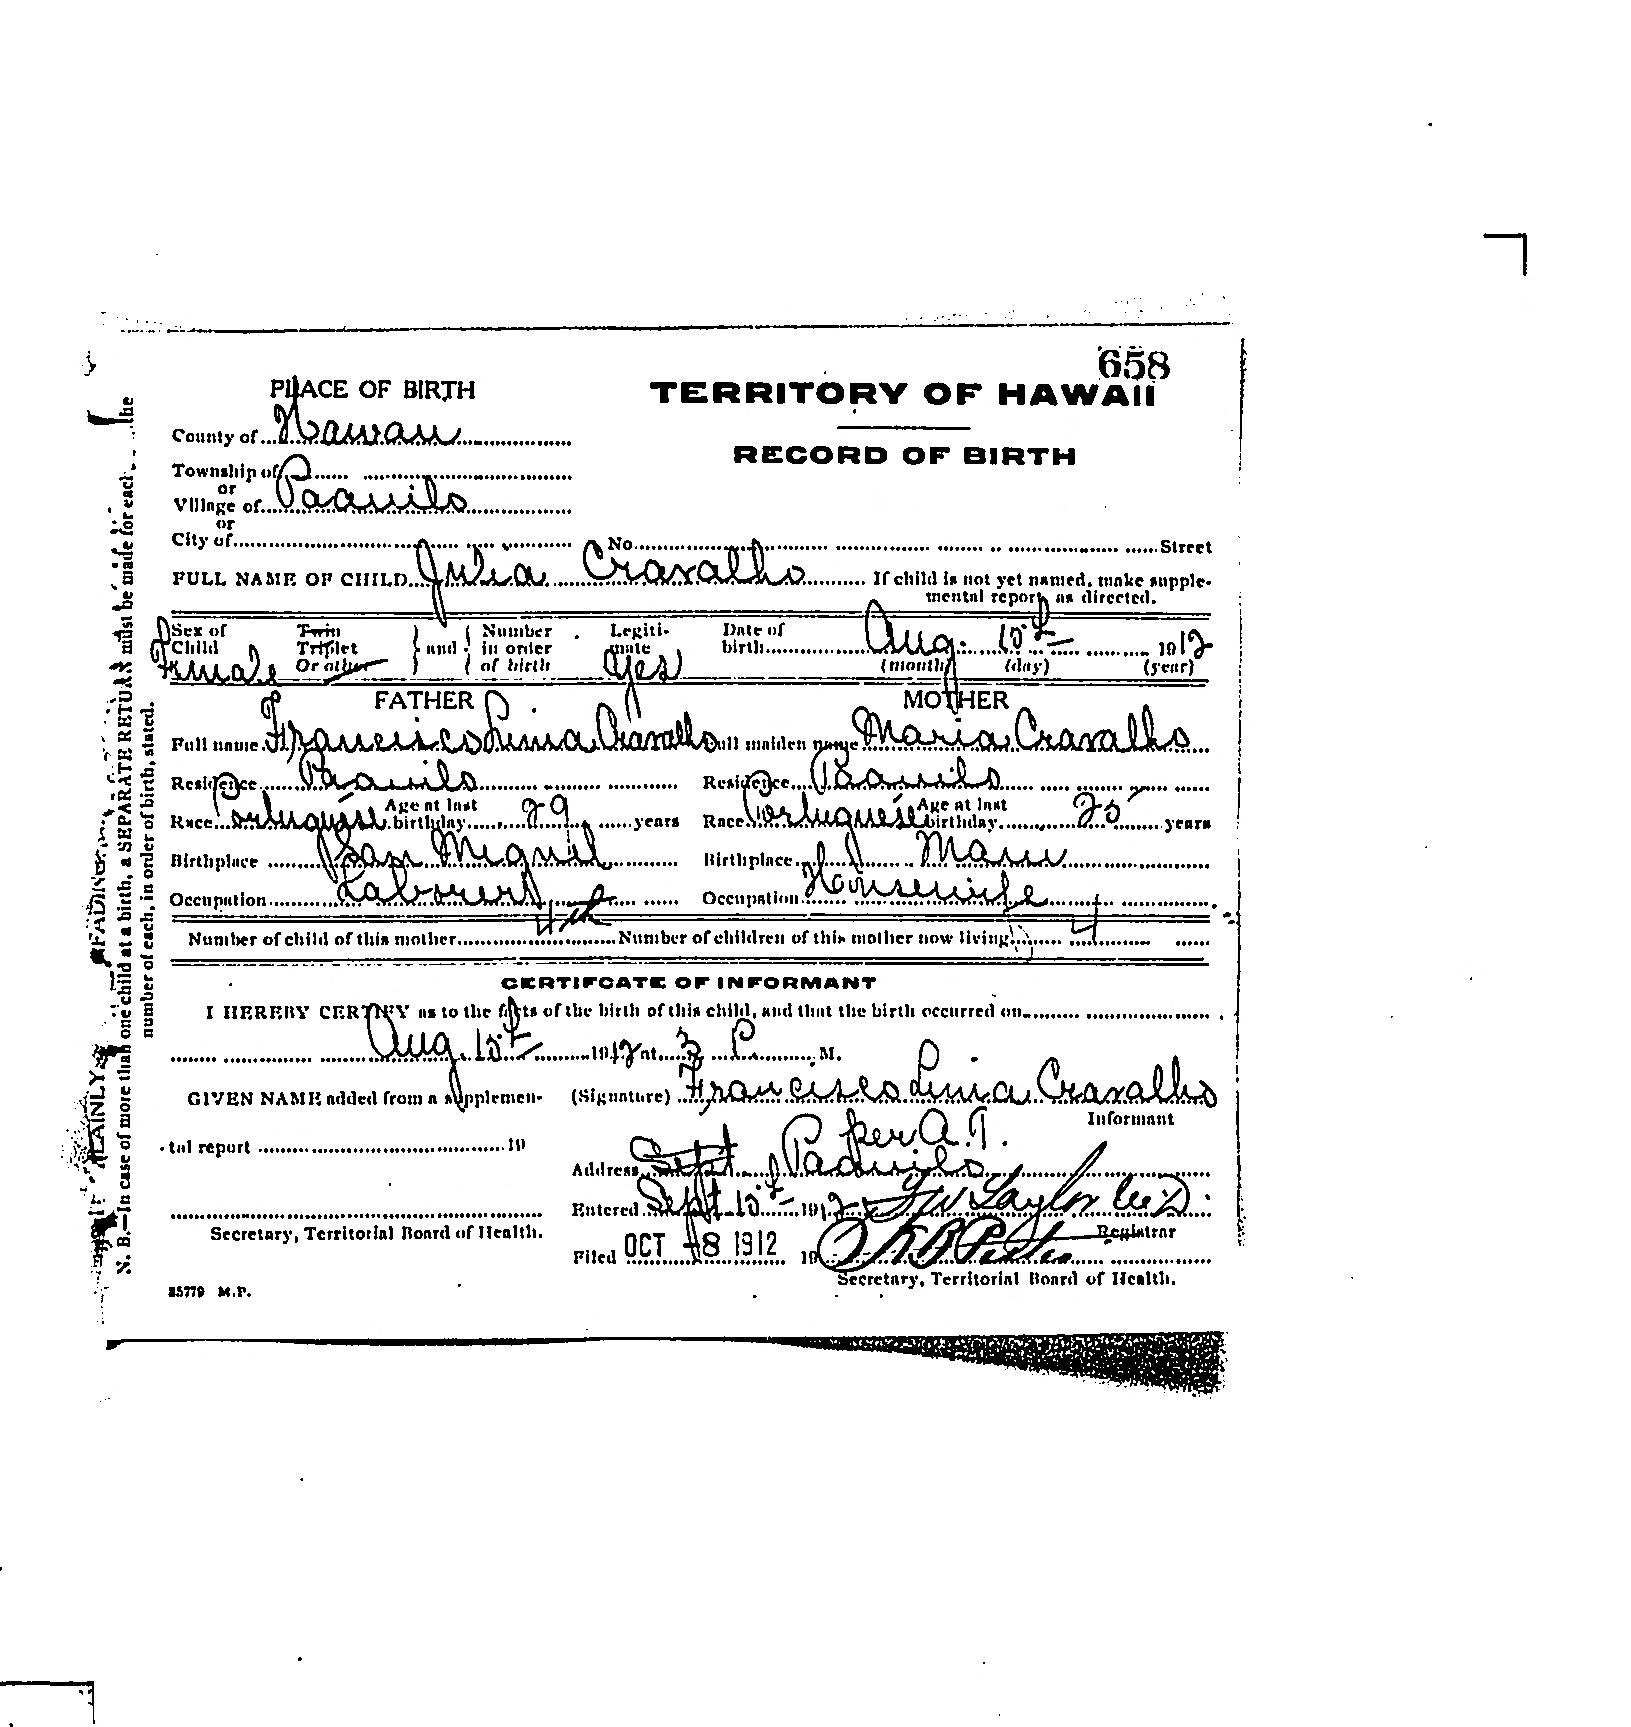 658
PLACE OF BIRTH
TERRITORY OF HAWAII
County of Hawaii
RECORD OF BIRTH
Township of
or
Village of Paauilo
or
City of No. Street
FULL NAME OF CHILD Julia Cravalho If child is not yet named, make supple-
mental report as directed.
Sex of Child Female Twin Triplet Or other } and { Number in order of birth Legiti- mate yes Date of birth Aug. 15th 1912
(month) (day) (year)
FATHER MOTHER
Full name Francisco Cravalho Full maiden name Maria Cravalho
Residence Paauilo Residence Paauilo
Race Portuguese Age at last birthday 29 years Race Portuguese Age at last birthday 25 years
Birthplace San Miguel Birthplace Maui
Occupation Laborer Occupation Housewife
Number of child of this mother 4th Number of children of this mother now living 4
CERTIFCATE OF INFORMANT
I HEREBY CERTIFY as to the facts of the birth of this child, and that the birth occurred on
Aug. 15th 1912 at 3 P. M.
GIVEN NAME added from a supplemen- (Signature) Francisco Cravalho
Informant
per A. T.
tal report 19
Address Sept Paauilo
Entered Sept 15th 1912 Taylor M.D.
Registrar
Secretary, Territorial Board of Health.
Filed OCT -8 1912 19
Secretary, Territorial Board of Health.
85779 M.P.
FADING
PLAINLY
N. B.—In case of more than one child at a birth, a SEPARATE RETURN must be made for each the
number of each, in order of birth, stated.